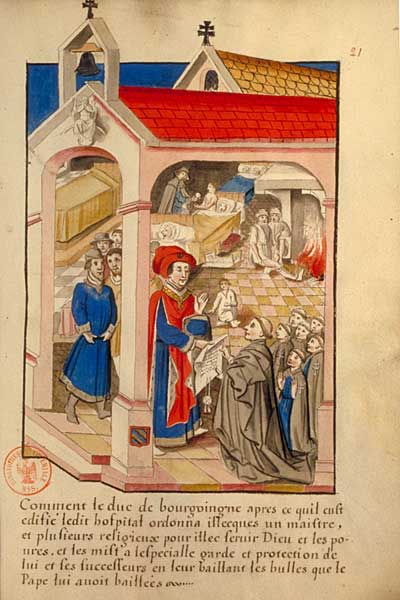 21
Comment le duc de bourgoingne apres ce quil eust
edifie ledit hospital ordonna illecques un maistre,
et plusieurs religieux pour illec servir Dieu et les po-
ures, et les mist a lespecialle garde et protection de
lui et ses successeurs en leur baillant les bulles que le
Pape lui avoit baillees